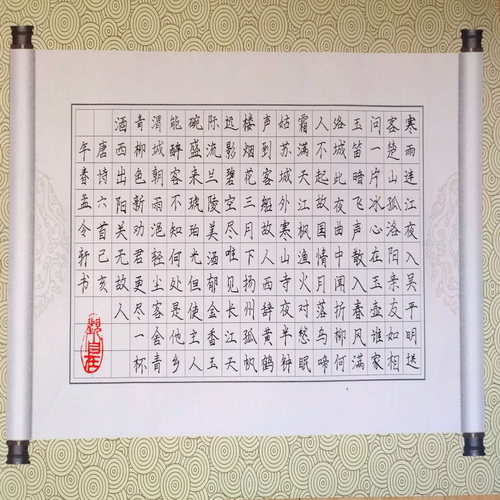 寒雨连江夜入吴平明送
客楚山孤洛阳亲友如相
问一片冰心在玉壶谁家
玉笛暗飞声散入春风满
洛城此夜曲中闻折柳何
人不起故国情月落乌啼
霜满天江枫渔火对愁眠
姑苏城外寒山寺夜半钟
声到客船故人西辞黄鹤
楼烟花三月下扬州孤帆
远影碧空尽唯见长江天
际流兰陵美酒郁金香玉
碗盛来琥珀光但使主人
能醉客不知何处是他乡
渭城朝雨浥轻尘客舍青
青柳色新劝君更尽一杯
酒西出阳关无故人
唐诗六首己亥
年春孟令轩书
觀自在